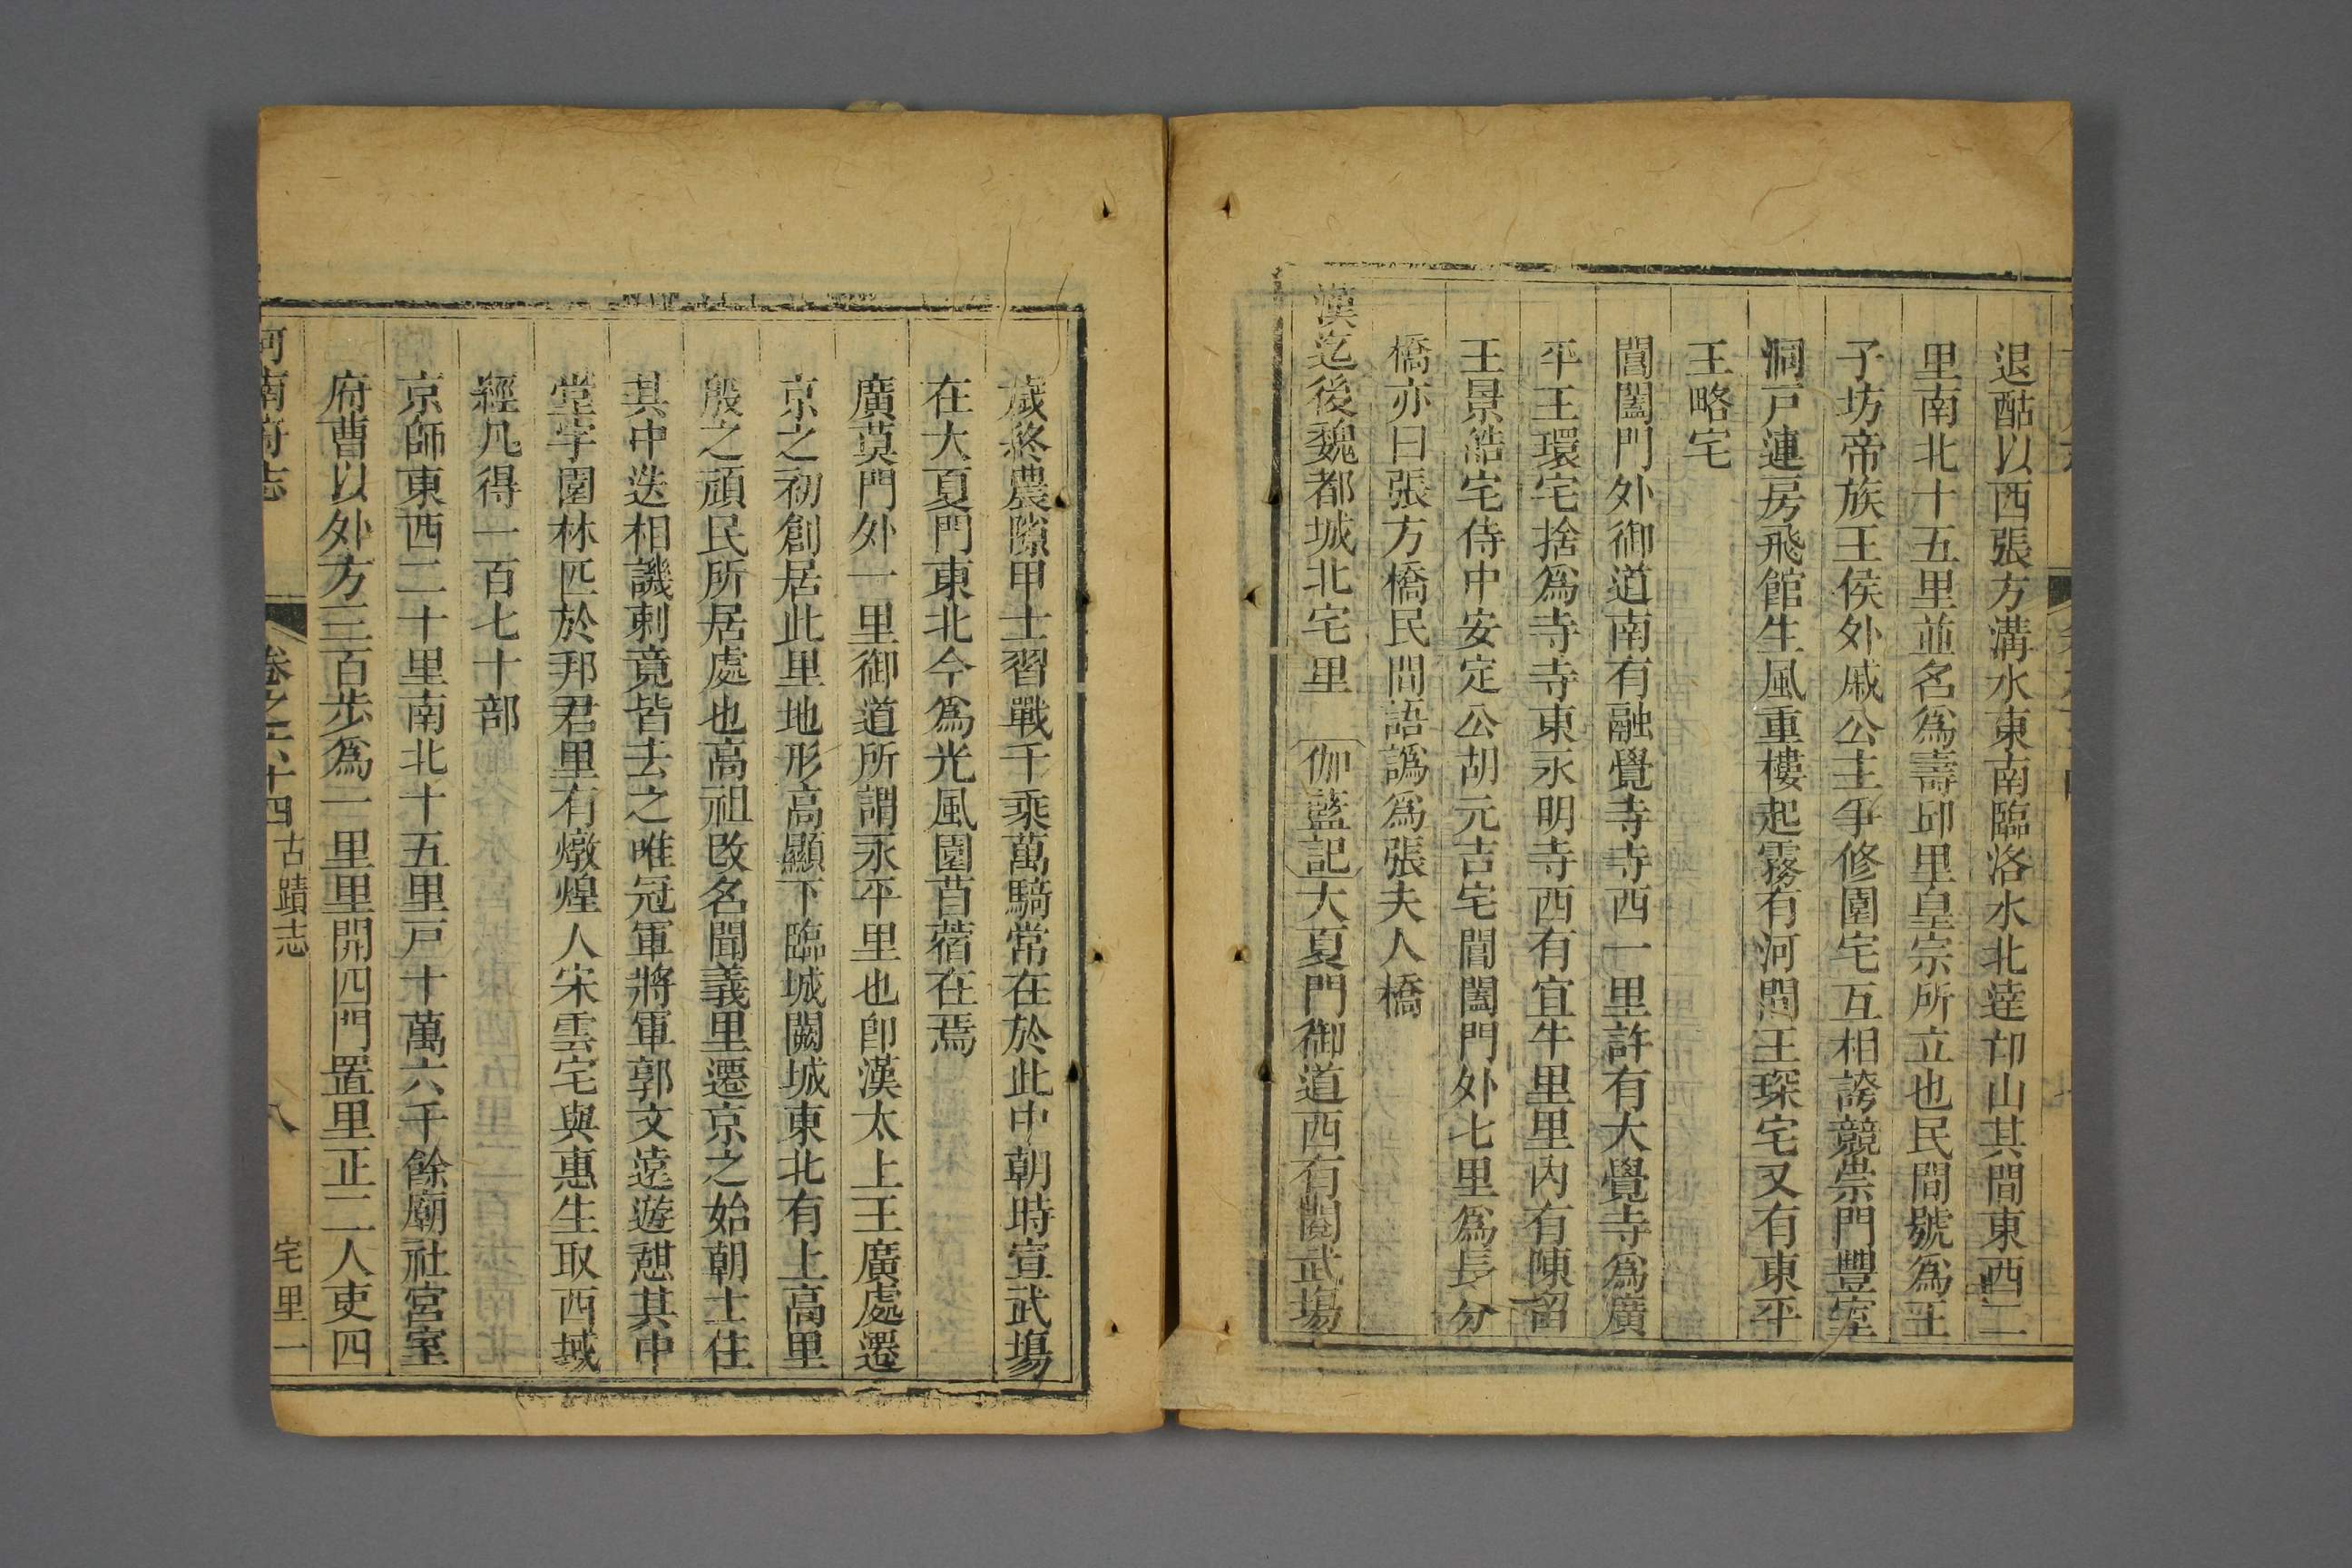 退酤以西張方溝水東南臨洛水北達邙山其間東西二
里南北十五里並名爲壽邱里皇宗所立也民間號爲王
子坊帝族王侯外戚公主爭修園宅互相誇競崇門豐室
洞戸連房飛館生風重樓起霧有河間王琛宅又有東平
王略宅
閶闔門外御道南有融覺寺寺西一里許有大覺寺爲廣
平王環宅捨爲寺寺東永明寺西有宜牛里里內有陳留
王景皓宅侍中安定公胡元吉宅閶闔門外七里爲長分
橋亦曰張方橋民間語譌爲張夫人橋
漢迄後魏都城北宅里 伽藍記大夏門御道西有閱武場
歲終農隙甲士習戰千乘萬騎常在於此中朝時宣武場
在大夏門東北今爲光風園苜蓿在焉
廣莫門外一里御道所謂永平里也卽漢太上王廣處遷
京之初創居此里地形高顯下臨城闕城東北有上高里
殷之頑民所居處也高祖改名聞義里遷京之始朝士住
其中迭相譏刺竟皆去之唯冠軍將軍郭文遠遊憇其中
堂宇園林匹於邦君里有燉煌人宋雲宅與惠生取西域
經凡得一百七十部
京師東西二十里南北十五里戸十萬六千餘廟社宮室
府曹以外方三百步爲一里里開四門置里正二人吏四
河南府志 卷之六十四 古蹟志 八 宅里一